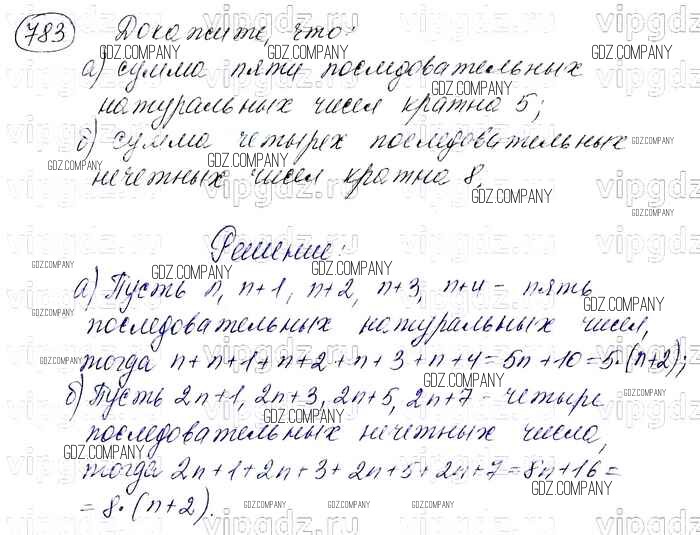 783 Докажите, что:
а) сумма пяти последовательных
натуральных чисел кратна 5;
б) сумма четырех последовательных
нечетных чисел кратна 8.
Решение:
а) Пусть n, n+1, n+2, n+3, n+4 - пять
последовательных натуральных чисел,
тогда n+n+1+n+2+n+3+n+4=5n+10=5·(n+2);
б) Пусть 2n+1, 2n+3, 2n+5, 2n+7 - четыре
последовательных нечетных числа,
тогда 2n+1+2n+3+2n+5+2n+7=8n+16=
=8·(n+2).